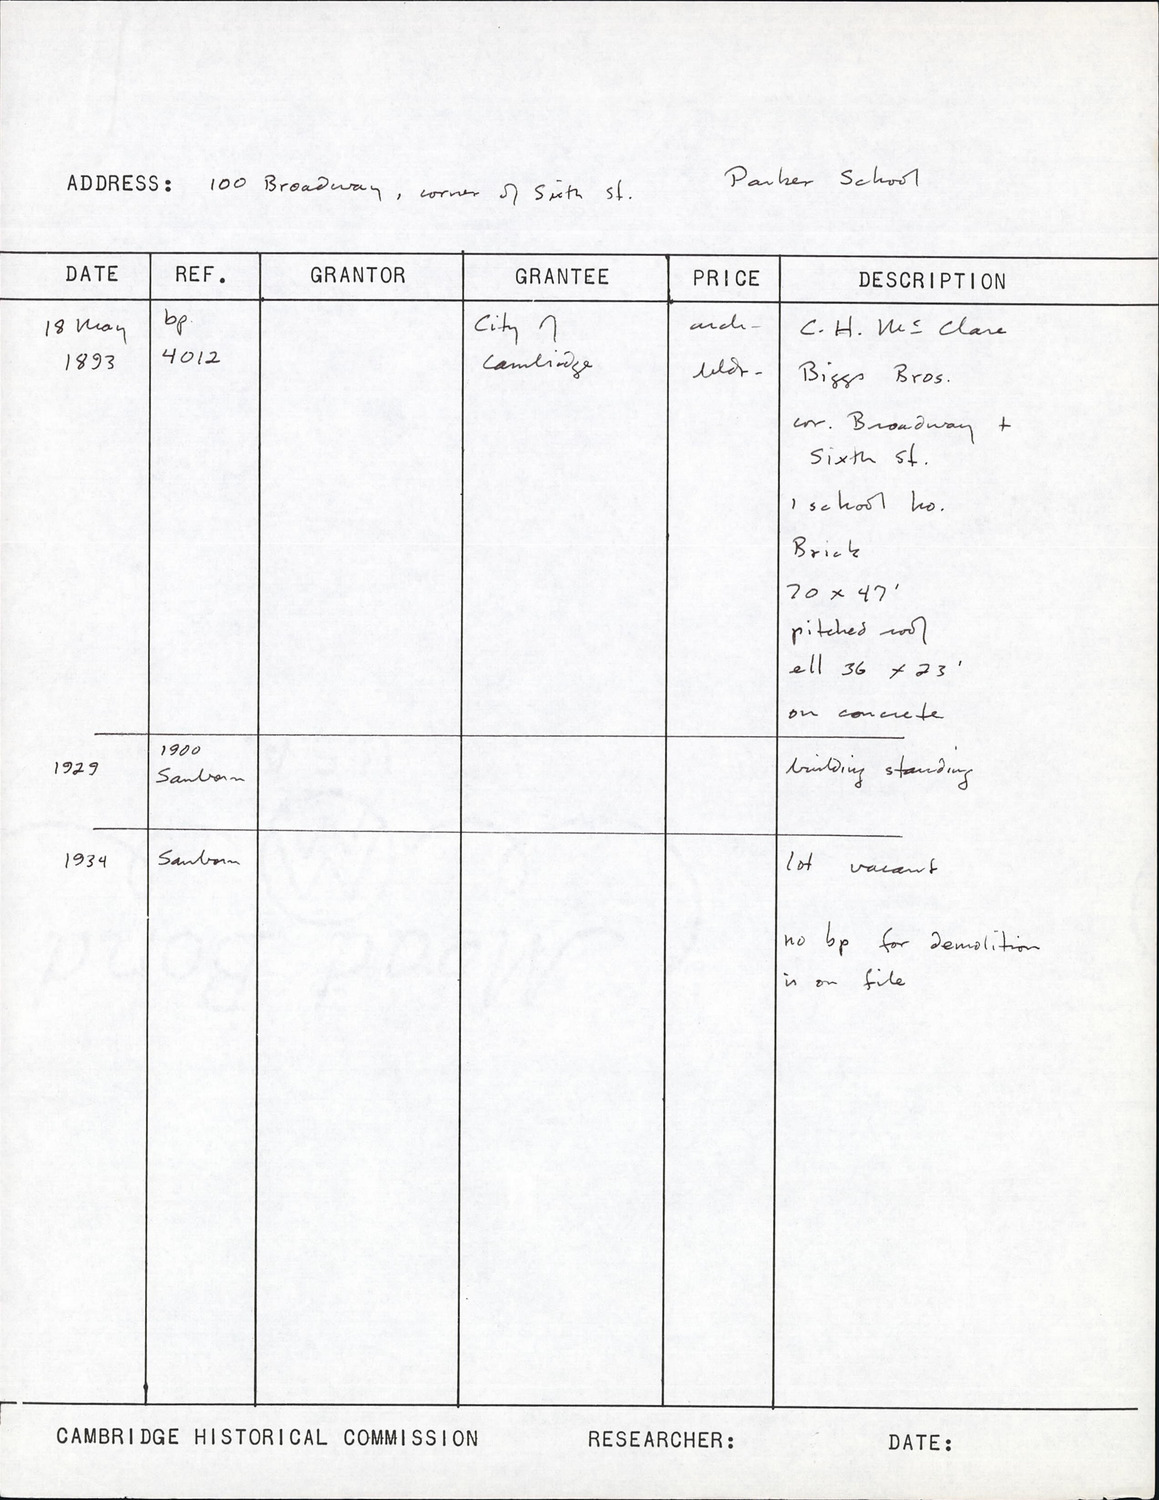 ADDRESS: 100 Broadway, corner of Sixth St. Parker School
DATE REF. GRANTOR GRANTEE PRICE DESCRIPTION
18 May bp. City of arch- C. H. McClare
1893 4012 Cambridge bldr- Biggs Bros.
cor. Broadway +
Sixth St.
1 school ho.
Brick
70 x 47'
pitched roof
ell 36 x 23'
on concrete
1900
1929 Sanborn building standing
1934 Sanborn lot vacant
no bp for demolition
is on file
CAMBRIDGE HISTORICAL COMMISSION RESEARCHER: DATE: